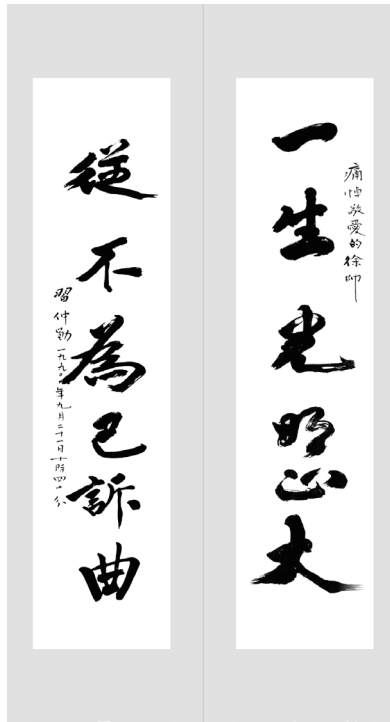 痛悼敬愛的徐帅
一生光明正大
從不為己訴曲
習仲勛一九九〇年九月二十一日十时四十分